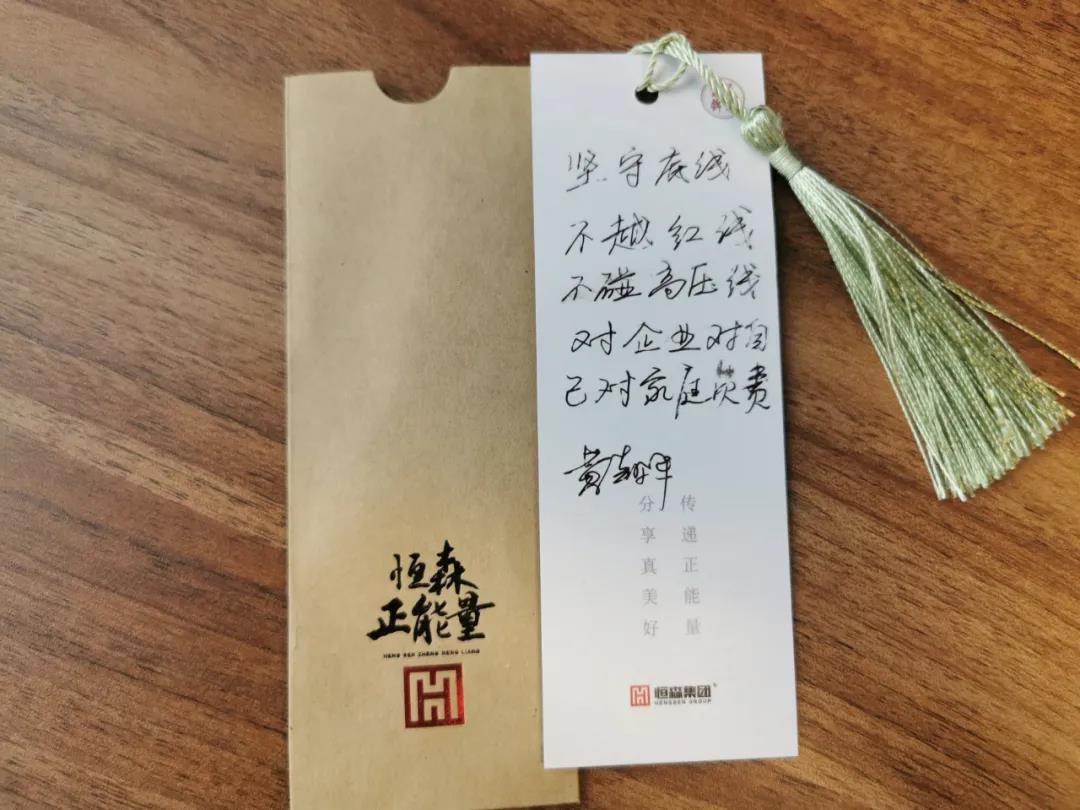 恒森
正能量
HENG SEN ZHENG NENG LIANG
坚守底线
不越红线
不碰高压线
对企业对自
己对家庭负责
黄
传递正能量
分享真美好
恒森集团
HENGSEN GROUP